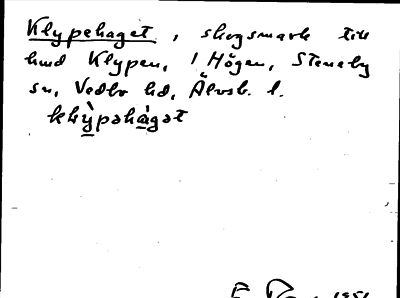 Klypehaget, skogsmark till
hmd Klypen, 1 Högen, Steneby
sn, Vedbo hd, Älvsb. l.
klỳpəhàgət
1951